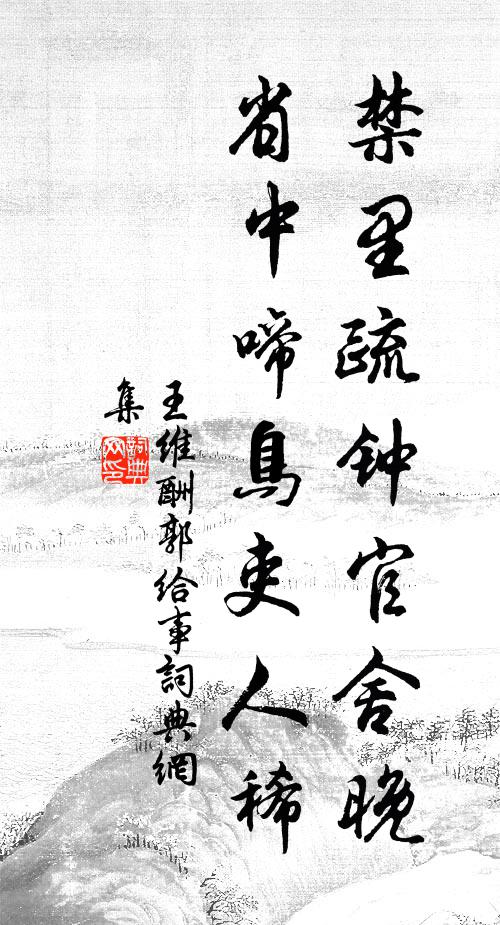 禁里疏钟官舍晚
省中啼鳥吏人稀
王维酬郭给事詞典網
集
詞典
网印